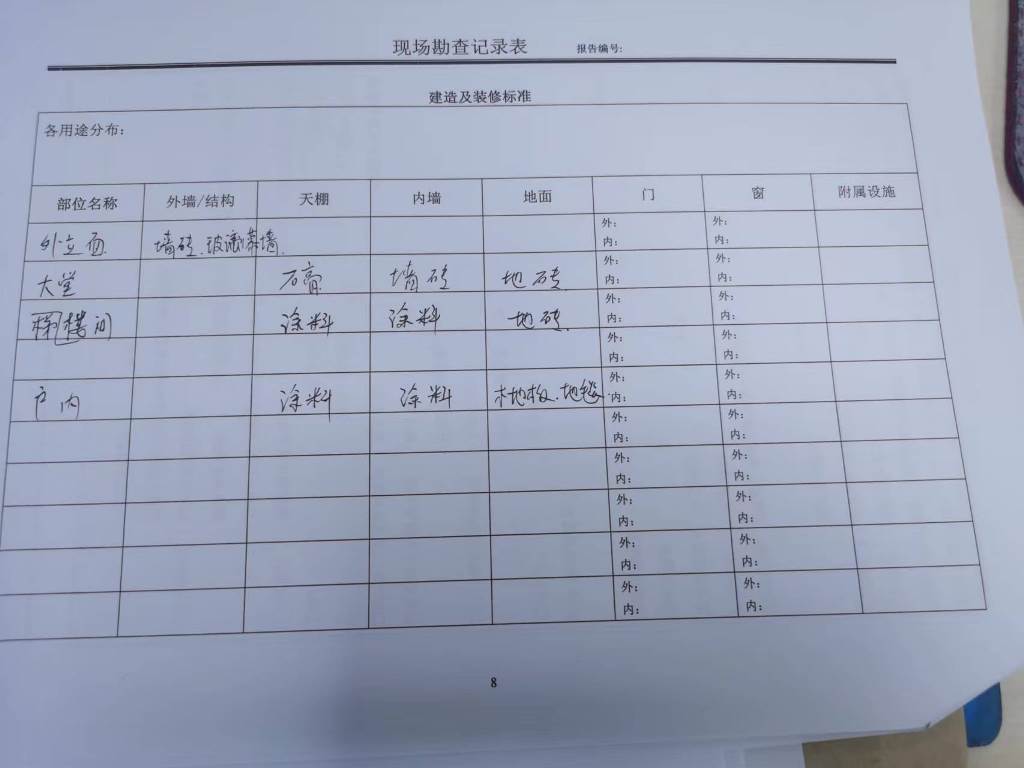 现场勘查记录表 报告编号:
建造及装修标准
各用途分布:
部位名称 外墙/结构 天棚 内墙 地面 门 窗 附属设施
外立面 墙砖.玻璃幕墙. 外: 内: 外: 内:
大堂 石膏 墙砖 地砖 外: 内: 外: 内:
楼间 涂料 涂料 地砖. 外: 内: 外: 内:
外: 内: 外: 内:
户内 涂料 涂料 木地板.地毯 外: 内: 外: 内:
外: 内: 外: 内:
外: 内: 外: 内:
外: 内: 外: 内:
外: 内: 外: 内:
外: 内: 外: 内:
8